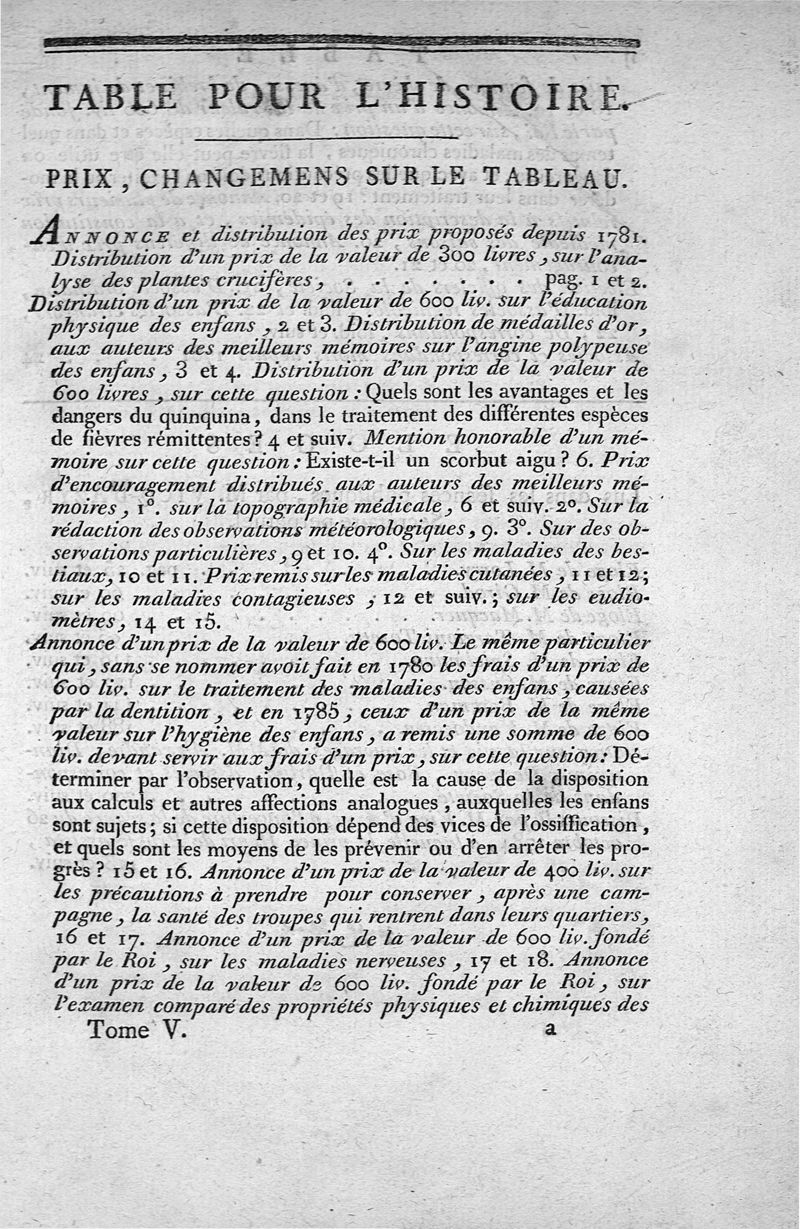 TABLE POUR L'HISTOIRE.
PRIX, CHANGEMENS SUR LE TABLEAU.
ANNONCE et distribution des prix proposés depuis 1781.
Distribution d'un prix de la valeur de 300 livres, sur l'ana-
lyse des plantes crucifères, . . . . . . . pag. 1 et 2.
Distribution d'un prix de la valeur de 600 liv. sur l'éducation
physique des enfans, 2 et 3. Distribution de médailles d'or,
aux auteurs des meilleurs mémoires sur l'angine polypeuse
des enfans, 3 et 4. Distribution d'un prix de la valeur de
600 livres, sur cette question : Quels sont les avantages et les
dangers du quinquina, dans le traitement des différentes espèces
de fièvres rémittentes? 4 et suiv. Mention honorable d'un mé-
moire sur cette question : Existe-t-il un scorbut aigu? 6. Prix
d'encouragement distribués aux auteurs des meilleurs mé-
moires, 1°. sur la topographie médicale, 6 et suiv. 2°. Sur la
rédaction des observations météorologiques, 9. 3°. Sur des ob-
servations particulières, 9 et 10. 4°. Sur les maladies des bes-
tiaux, 10 et 11. Prix remis sur les maladies cutanées, 11 et 12;
sur les maladies contagieuses, 12 et suiv.; sur les eudio-
mètres, 14 et 15.
Annonce d'un prix de la valeur de 600 liv. Le même particulier
qui, sans se nommer avoit fait en 1780 les frais d'un prix de
600 liv. sur le traitement des maladies des enfans, causées
par la dentition, et en 1785, ceux d'un prix de la même
valeur sur l'hygiène des enfans, a remis une somme de 600
liv. devant servir aux frais d'un prix, sur cette question : Dé-
terminer par l'observation, quelle est la cause de la disposition
aux calculs et autres affections analogues, auxquelles les enfans
sont sujets; si cette disposition dépend des vices de l'ossiffication,
et quels sont les moyens de les prévenir ou d'en arrêter les pro-
grès? 15 et 16. Annonce d'un prix de la valeur de 400 liv. sur
les précautions à prendre pour conserver, après une cam-
pagne, la santé des troupes qui rentrent dans leurs quartiers,
16 et 17. Annonce d'un prix de la valeur de 600 liv. fondé
par le Roi, sur les maladies nerveuses, 17 et 18. Annonce
d'un prix de la valeur de 600 liv. fondé par le Roi, sur
l'examen comparé des propriétés physiques et chimiques des
Tome V. a